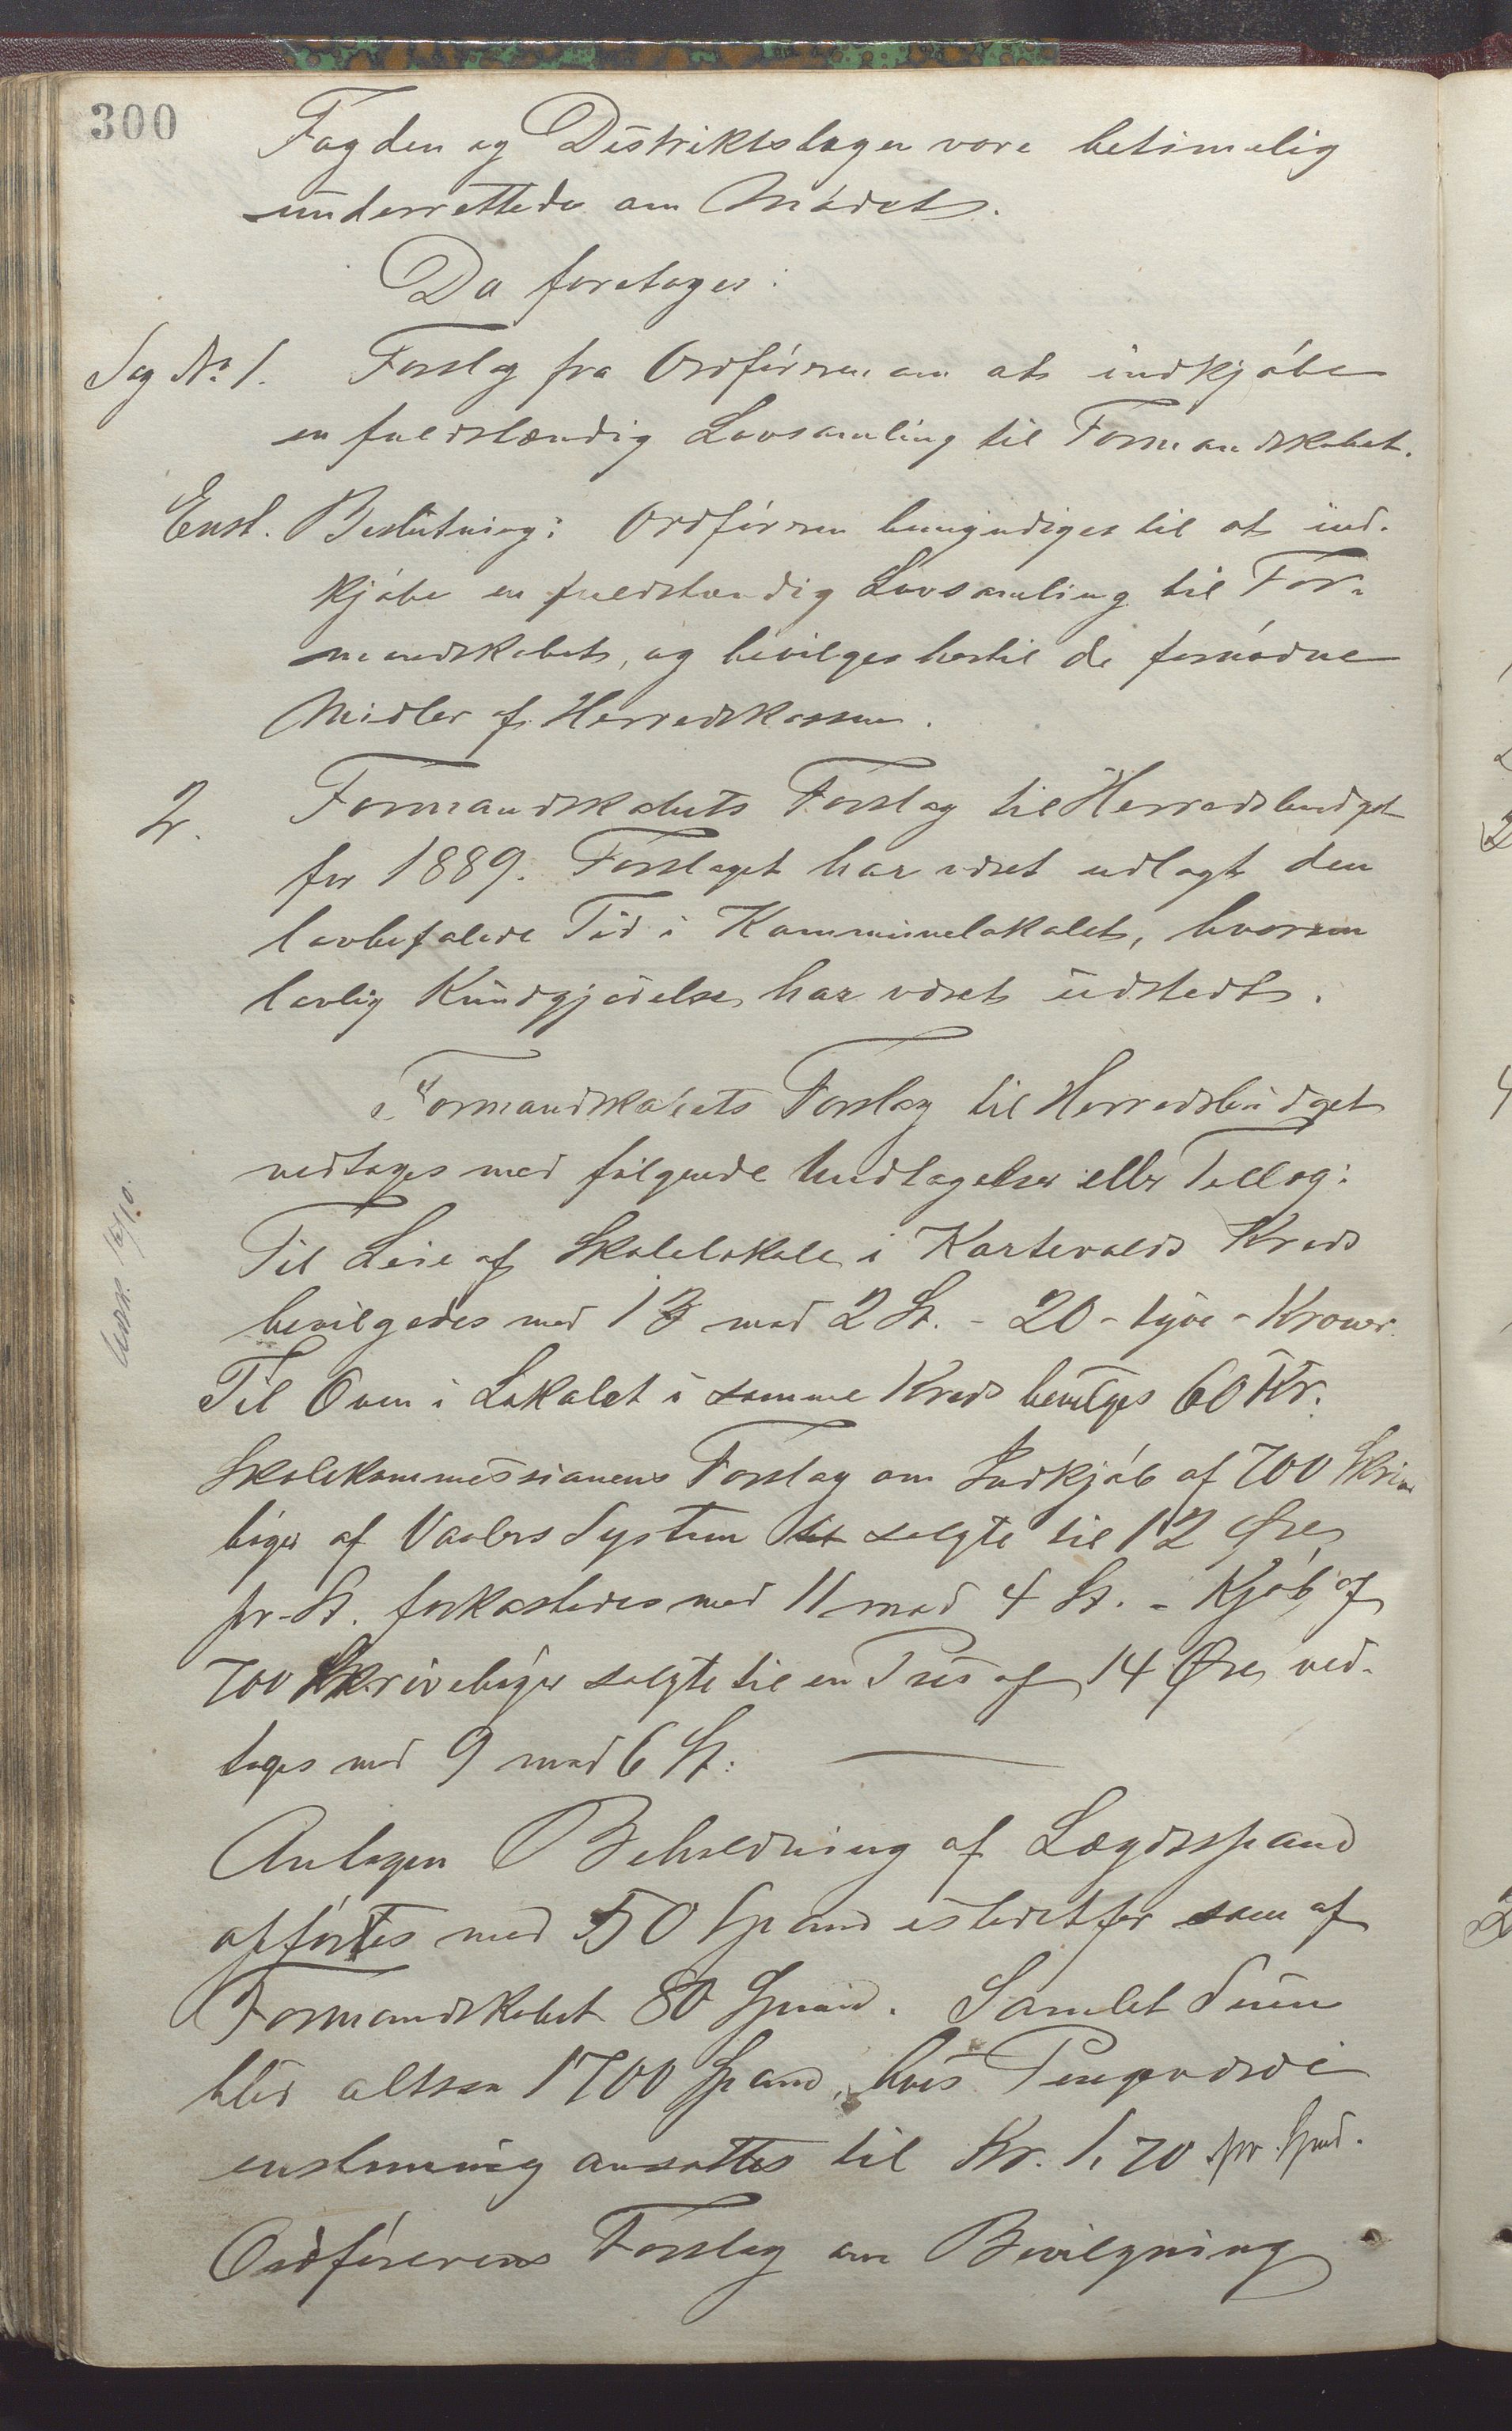 300
Fogden og Distriktslægen vare betimelig
underrettede om Mødet.
Da foretoges:
Sag No 1. Forslag fra Ordføreren om at indkjøbe
en fuldstændig Lovsamling til Formandskabet.
Enst. Beslutning: Ordføreren bemyndiges til at ind-
kjøbe en fuldstændig Lovsamling til For-
mandskabet, og bevilges hertil de fornødne
Midler af Herredskassen.
2. Formandskabets Forslag til Herredsbudget
for 1889. Forslaget har været udlagt den
lovbefalede Tid i Kommunelokalet, hvorom
lovlig Kundgjørelse har været udstedt.
Formandskabets Forslag til Herredsbudget
vedtages med følgende Undtagelser eller Tillæg:
Til Leie af Skolelokale i Kartevolds Kreds
bevilgedes med 13 mod 2 St. - 20 - tyve - Kroner.
Til Oven i Lokalet i samme Kreds bevilges 60 Kr.
Skolekommissionens Forslag om Indkjøb af 700 Skrive
bøger af Vaalers System solgte til 12 Øre
pr. St. forkastedes med 11 mod 4 St. - Kjøb af
700 Skrivebøger solgte til en Pris af 14 Øre ved-
toges med 9 mod 6 St.
Antagen Beholdning af Lægdsspand
opførtes med 50 Spand istedetfor som af
Formandskabet 80 Spand. Samlet Sum
blir altsaa 1700 Spand, hvis Pengeværdi
enstemmig ansattes til Kr. 1,70 pr. Spnd.
Ordførerens Forslag om Bevilgning